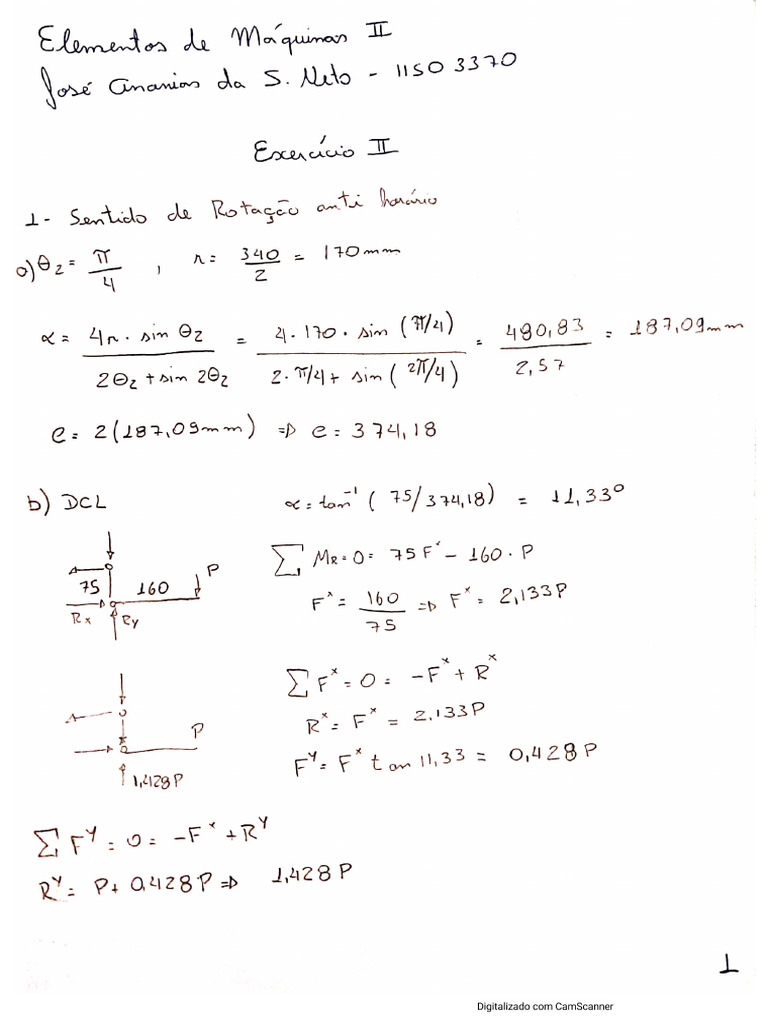 Elementos de Máquinas II
José Ananias da S. Neto - 11503370
Exercício II
1- Sentido de Rotação anti horário
a) θ2 = π/4 , r = 340/2 = 170mm
α = 4r · sin θ2 / 2θ2 + sin 2θ2 = 4·170·sin (π/4) / 2·π/4 + sin (2π/4) = 480,83 / 2,57 = 187,09mm
e = 2(187,09mm) => e = 374,18
b) DCL
α = tan⁻¹ (75/374,18) = 11,33°
75 160 P
Rx Ry
∑ MR = 0 = 75Fˣ - 160·P
Fˣ = 160/75 => Fˣ = 2,133P
P
1,428P
∑ Fˣ = 0 = -Fˣ + Rˣ
Rˣ = Fˣ = 2,133P
Fʸ = Fˣ tan 11,33 = 0,428P
∑ Fʸ = 0 = -Fˣ + Rʸ
Rʸ = P + 0,428P => 1,428P
1
Digitalizado com CamScanner